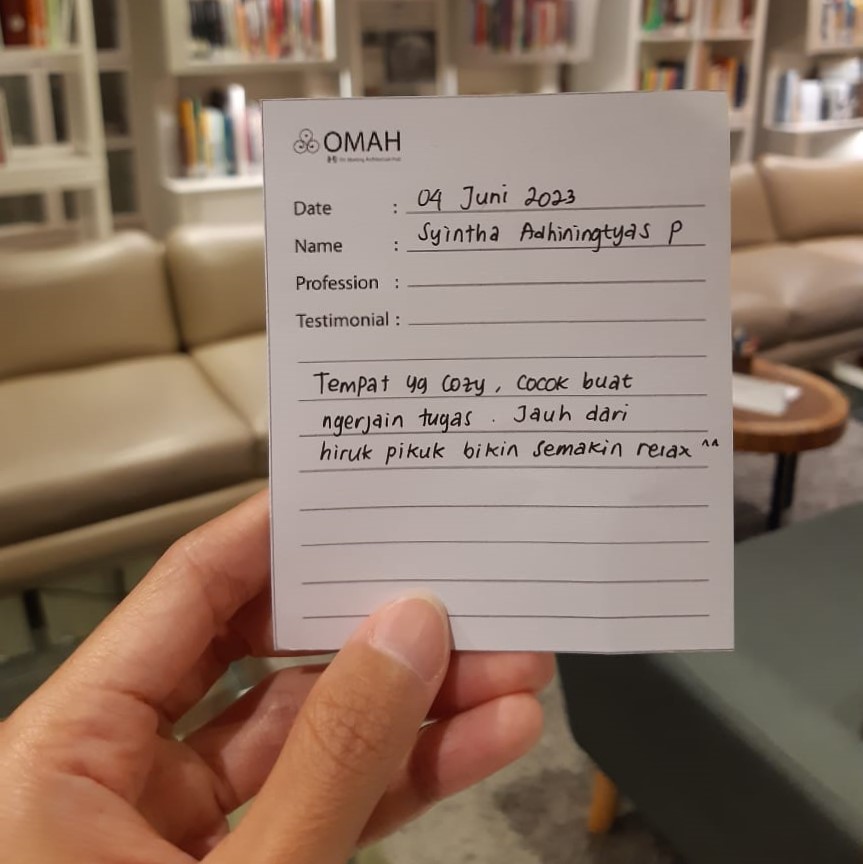 OMAH
Date : 04 Juni 2023
Name : Syintha Adhiningtyas P
Profession :
Testimonial :
Tempat yg cozy, cocok buat
ngerjain tugas. Jauh dari
hiruk pikuk bikin semakin relax ^^